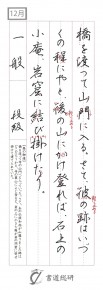 12月
橋を渡つて山門に入る。さて、彼の跡はいづ
くの程にやと、後の山にかけ登れば、石上の
小庵、岩窟に結び掛けたり。
一般　段級
書道総研